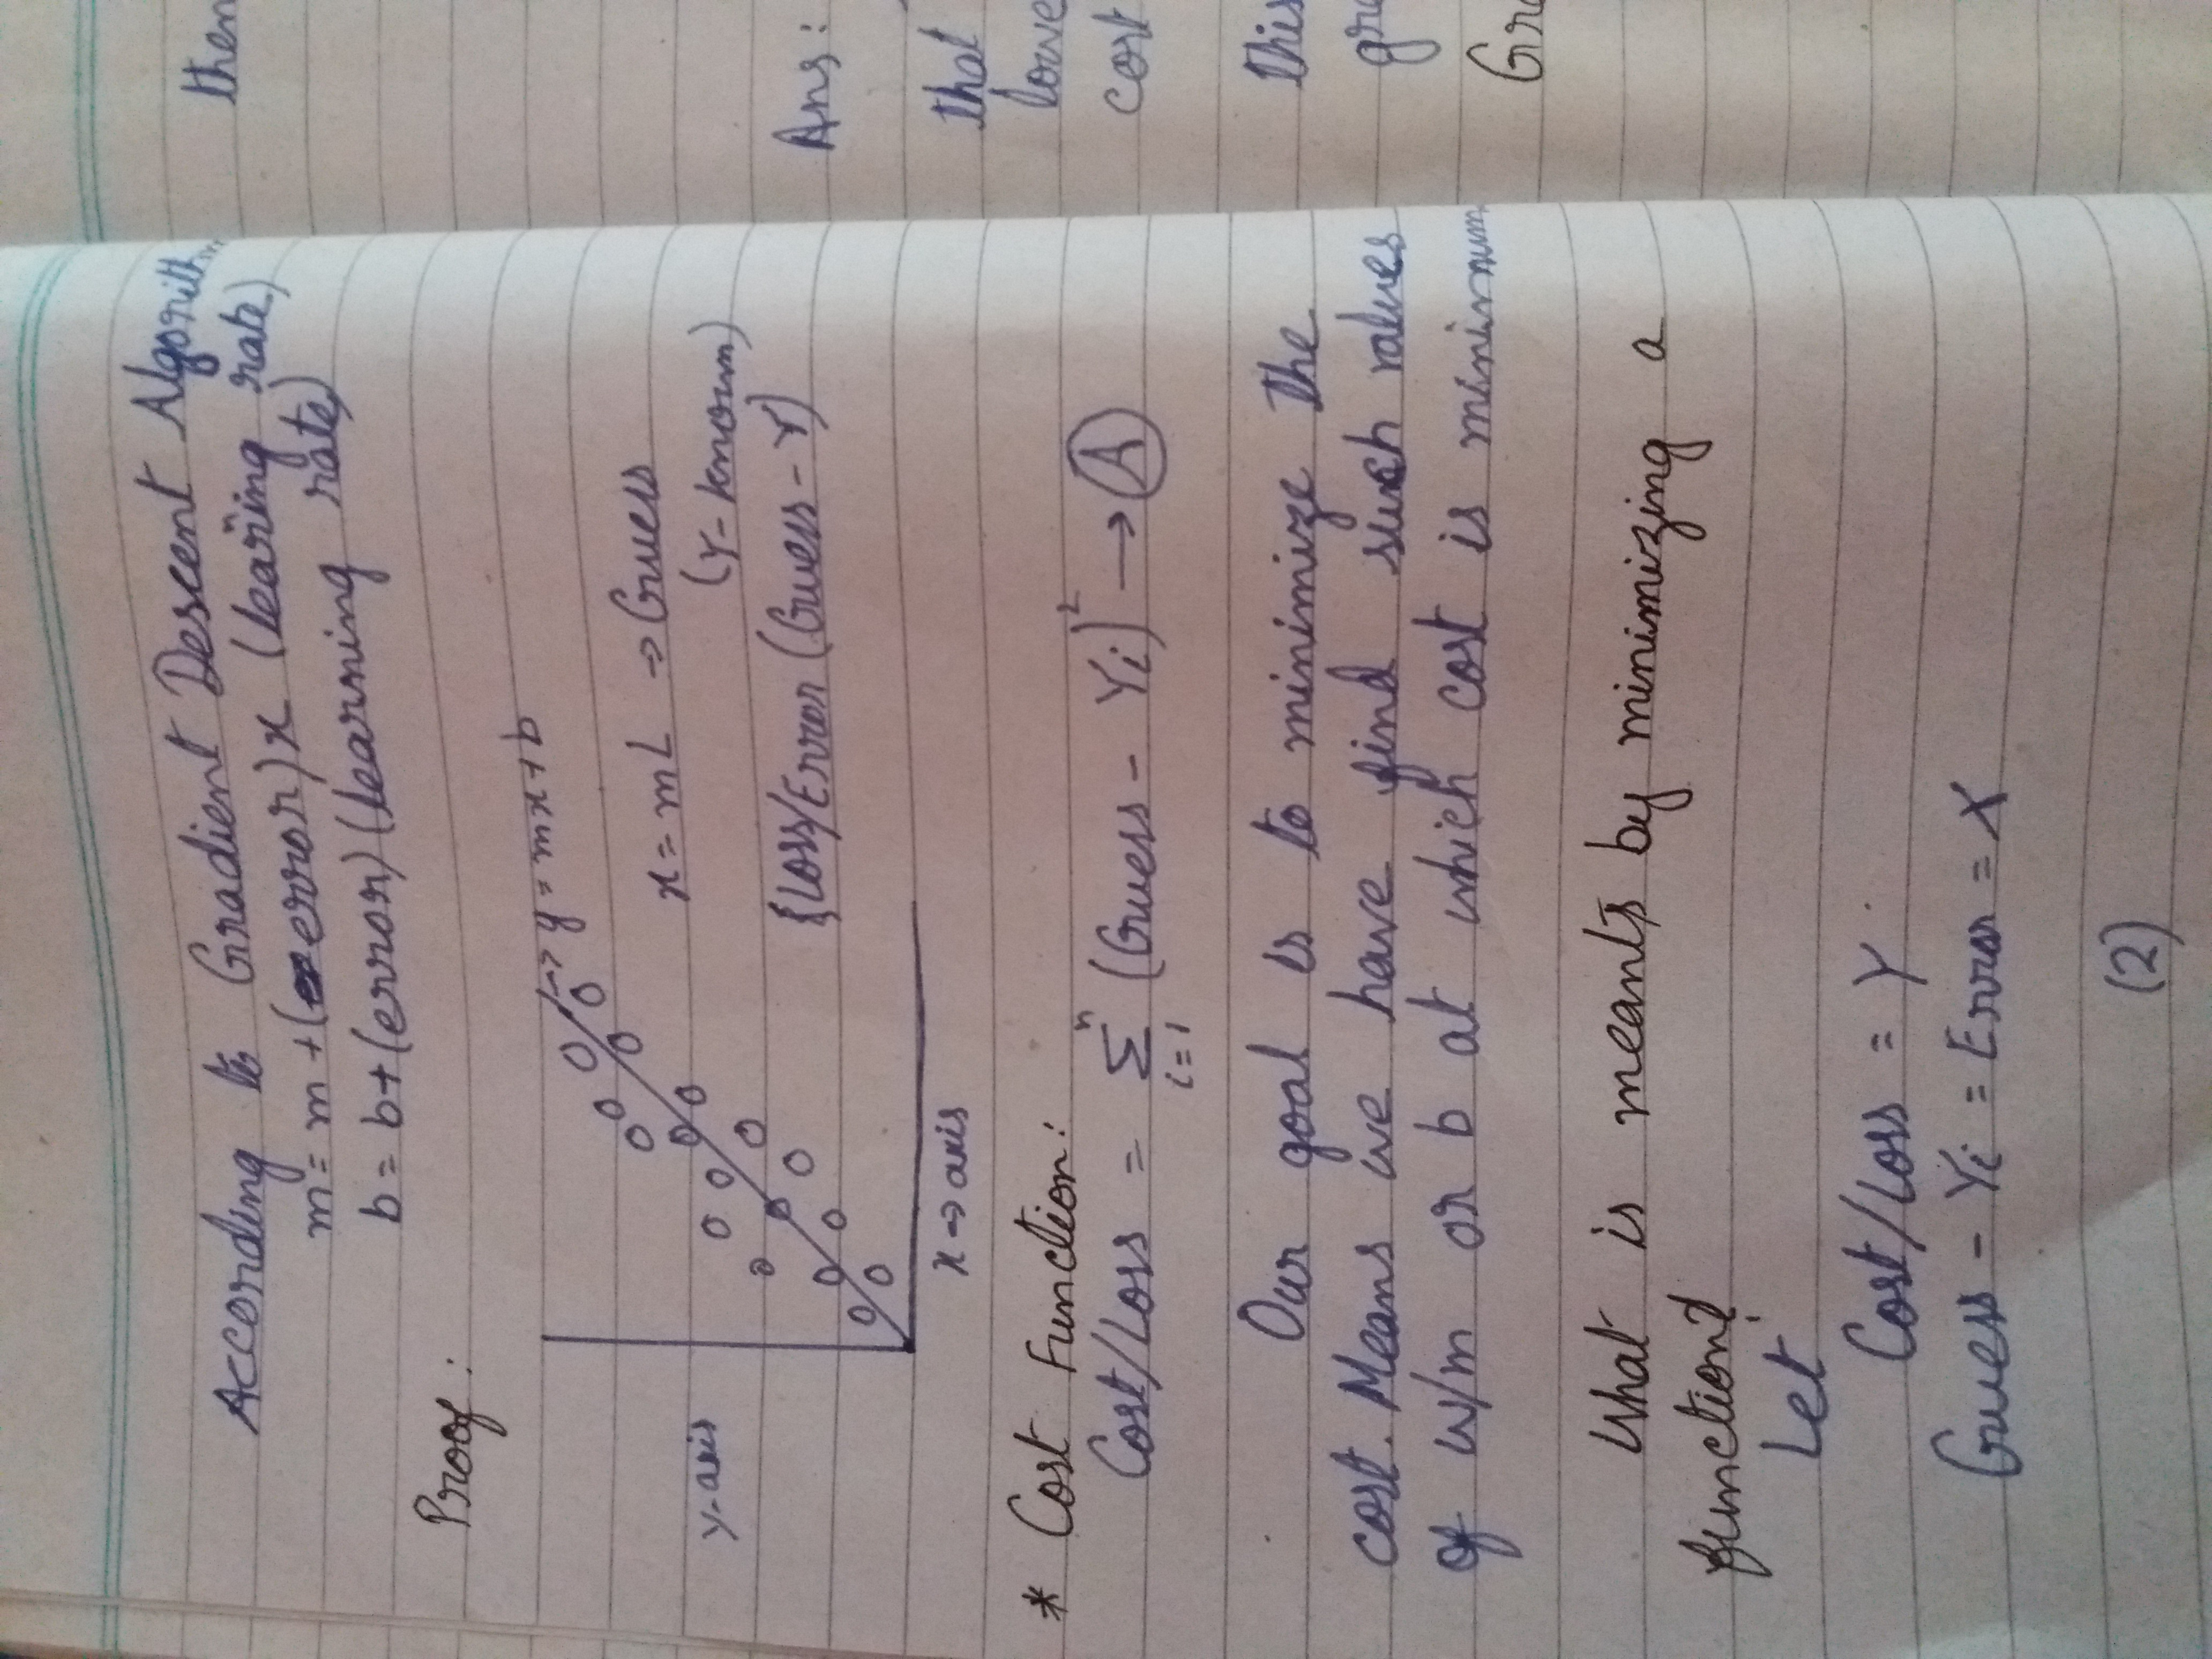 According to Gradient Descent Algorithm
m = m + (error) x (learning rate)
b = b + (error) (learning rate)
Proof :
→ y = mx + b
x = mL → Guess
(Y - known)
y-axis
{Loss/Error (Guess - Y)
x → axis
* Cost Function:
Cost/Loss = n Σ i=1 (Guess - Yi)² → A
Our goal is to minimize the
cost. Means we have find such values
of w/m or b at which cost is minimum
What is meants by minimizing a
function?
Let
Cost/Loss = Y
Guess - Yi = Error = X
(2)
then
Ans :
that
lowe
cost
this
gre
Gra